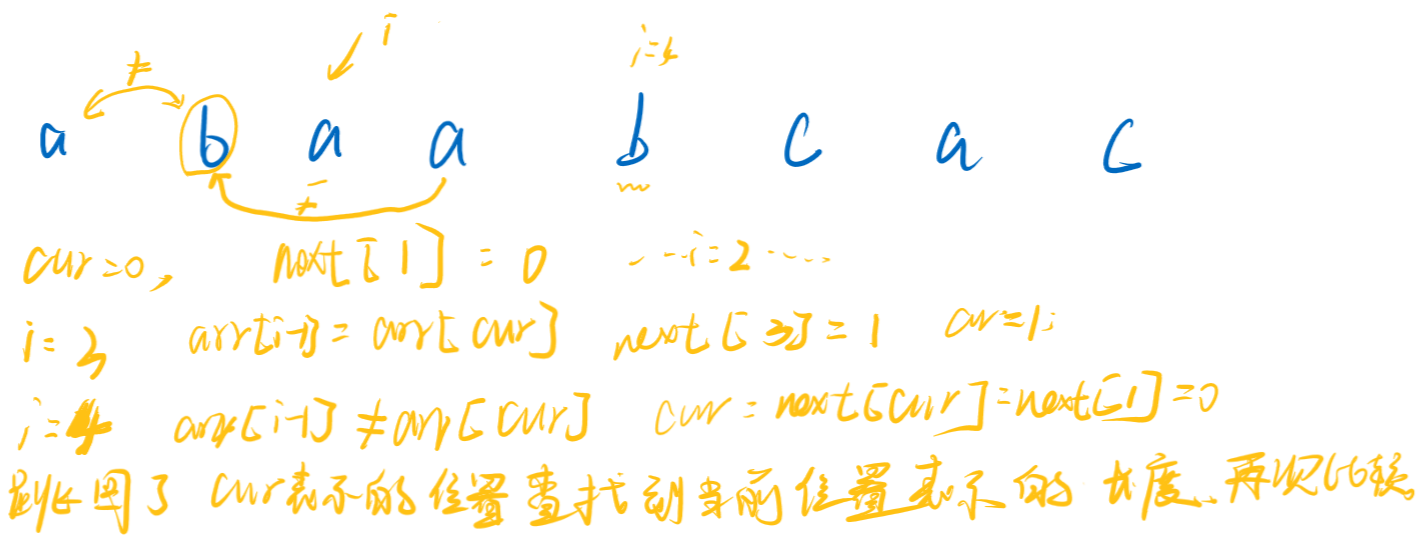 ≠ i i=4
a b a a b c a c
≠
cur=0, next[1]=0 ...i=2...
i=3 arr[i-1]=arr[cur] next[3]=1 cur=1;
i=4 arr[i-1]≠arr[cur] cur=next[cur]=next[1]=0
cur表示的位置查找到当前位置表示的长度、再次比较。